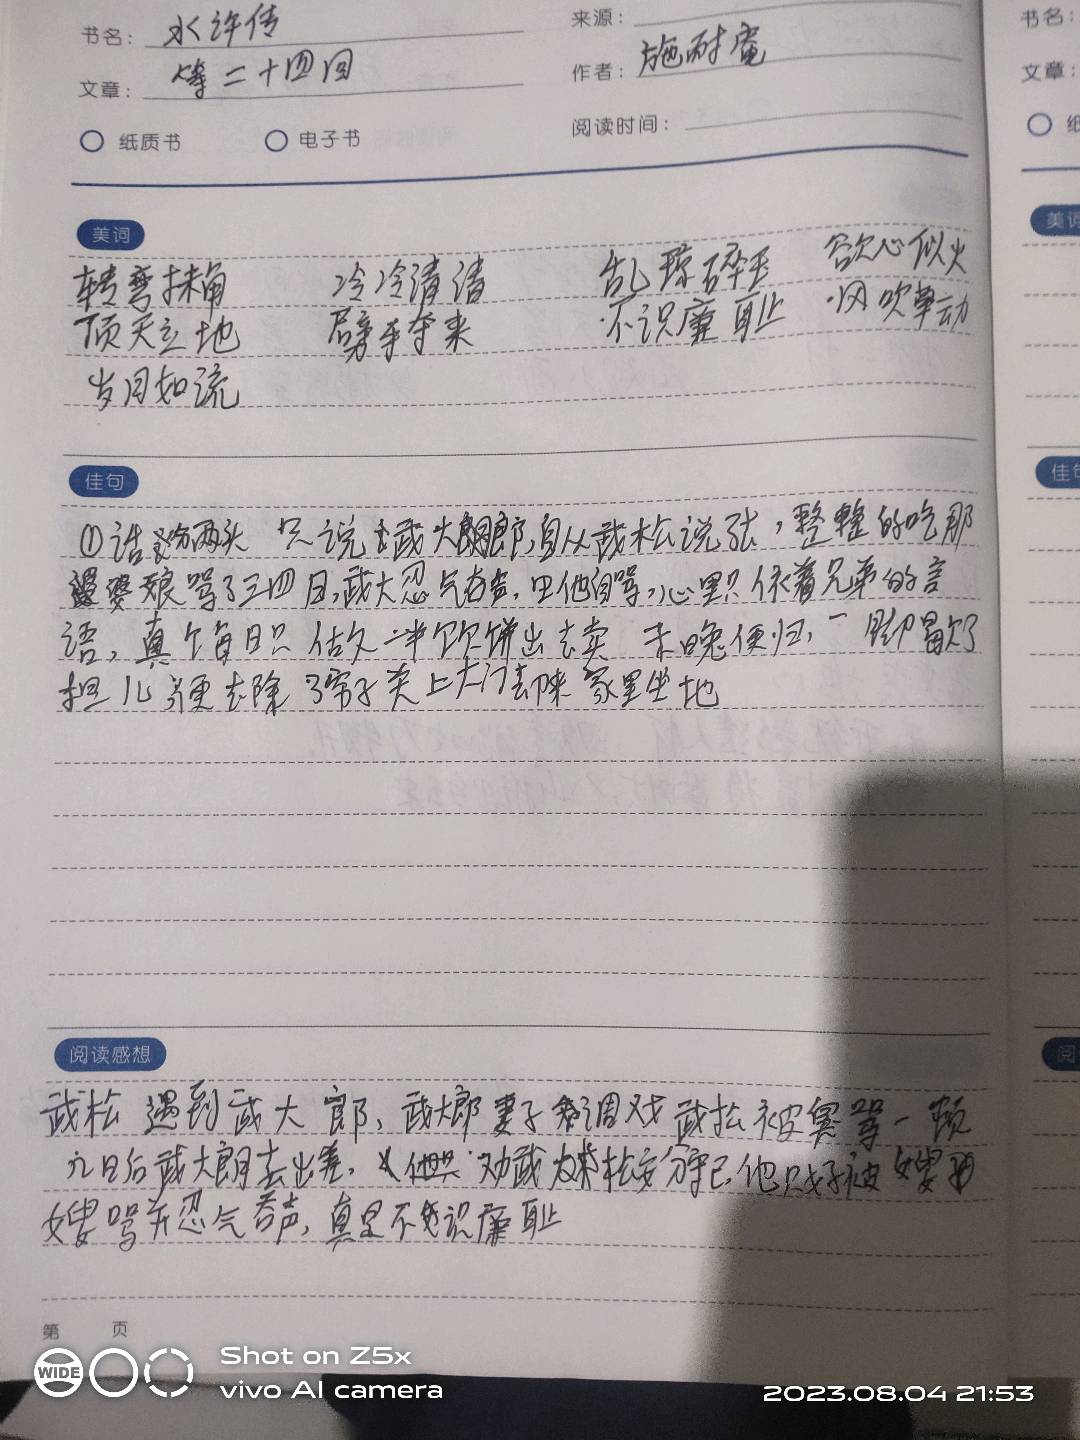 书名： 水浒传
来源：
文章： 第二十四回
作者： 施耐庵
纸质书 电子书
阅读时间：
美词
转弯抹角 冷冷清清 乱琼碎玉 欲心似火
顶天立地 劈手夺来 不识廉耻 风吹草动
岁月如流
佳句
①话分两头 只说武大郎,自从武松说张,整整的吃那
婆娘骂了三四日,武大忍气吞声,由他自骂,心里只依着兄弟的言
语,真个每日只做一半炊饼出去卖 未晚便归,一脚歇了
担儿便去除了帘子关上大门去来家里坐地
阅读感想
武松遇到武大郎,武大郎妻子调戏武松被臭骂一顿
九日后武大朗去出差,他劝武松安分守己他只好被嫂
嫂骂并忍气吞声,真是不识廉耻
第 页
WIDE
Shot on Z5x
vivo AI camera
2023.08.04 21:53
书名：
文章：
纸
美词
佳句
阅